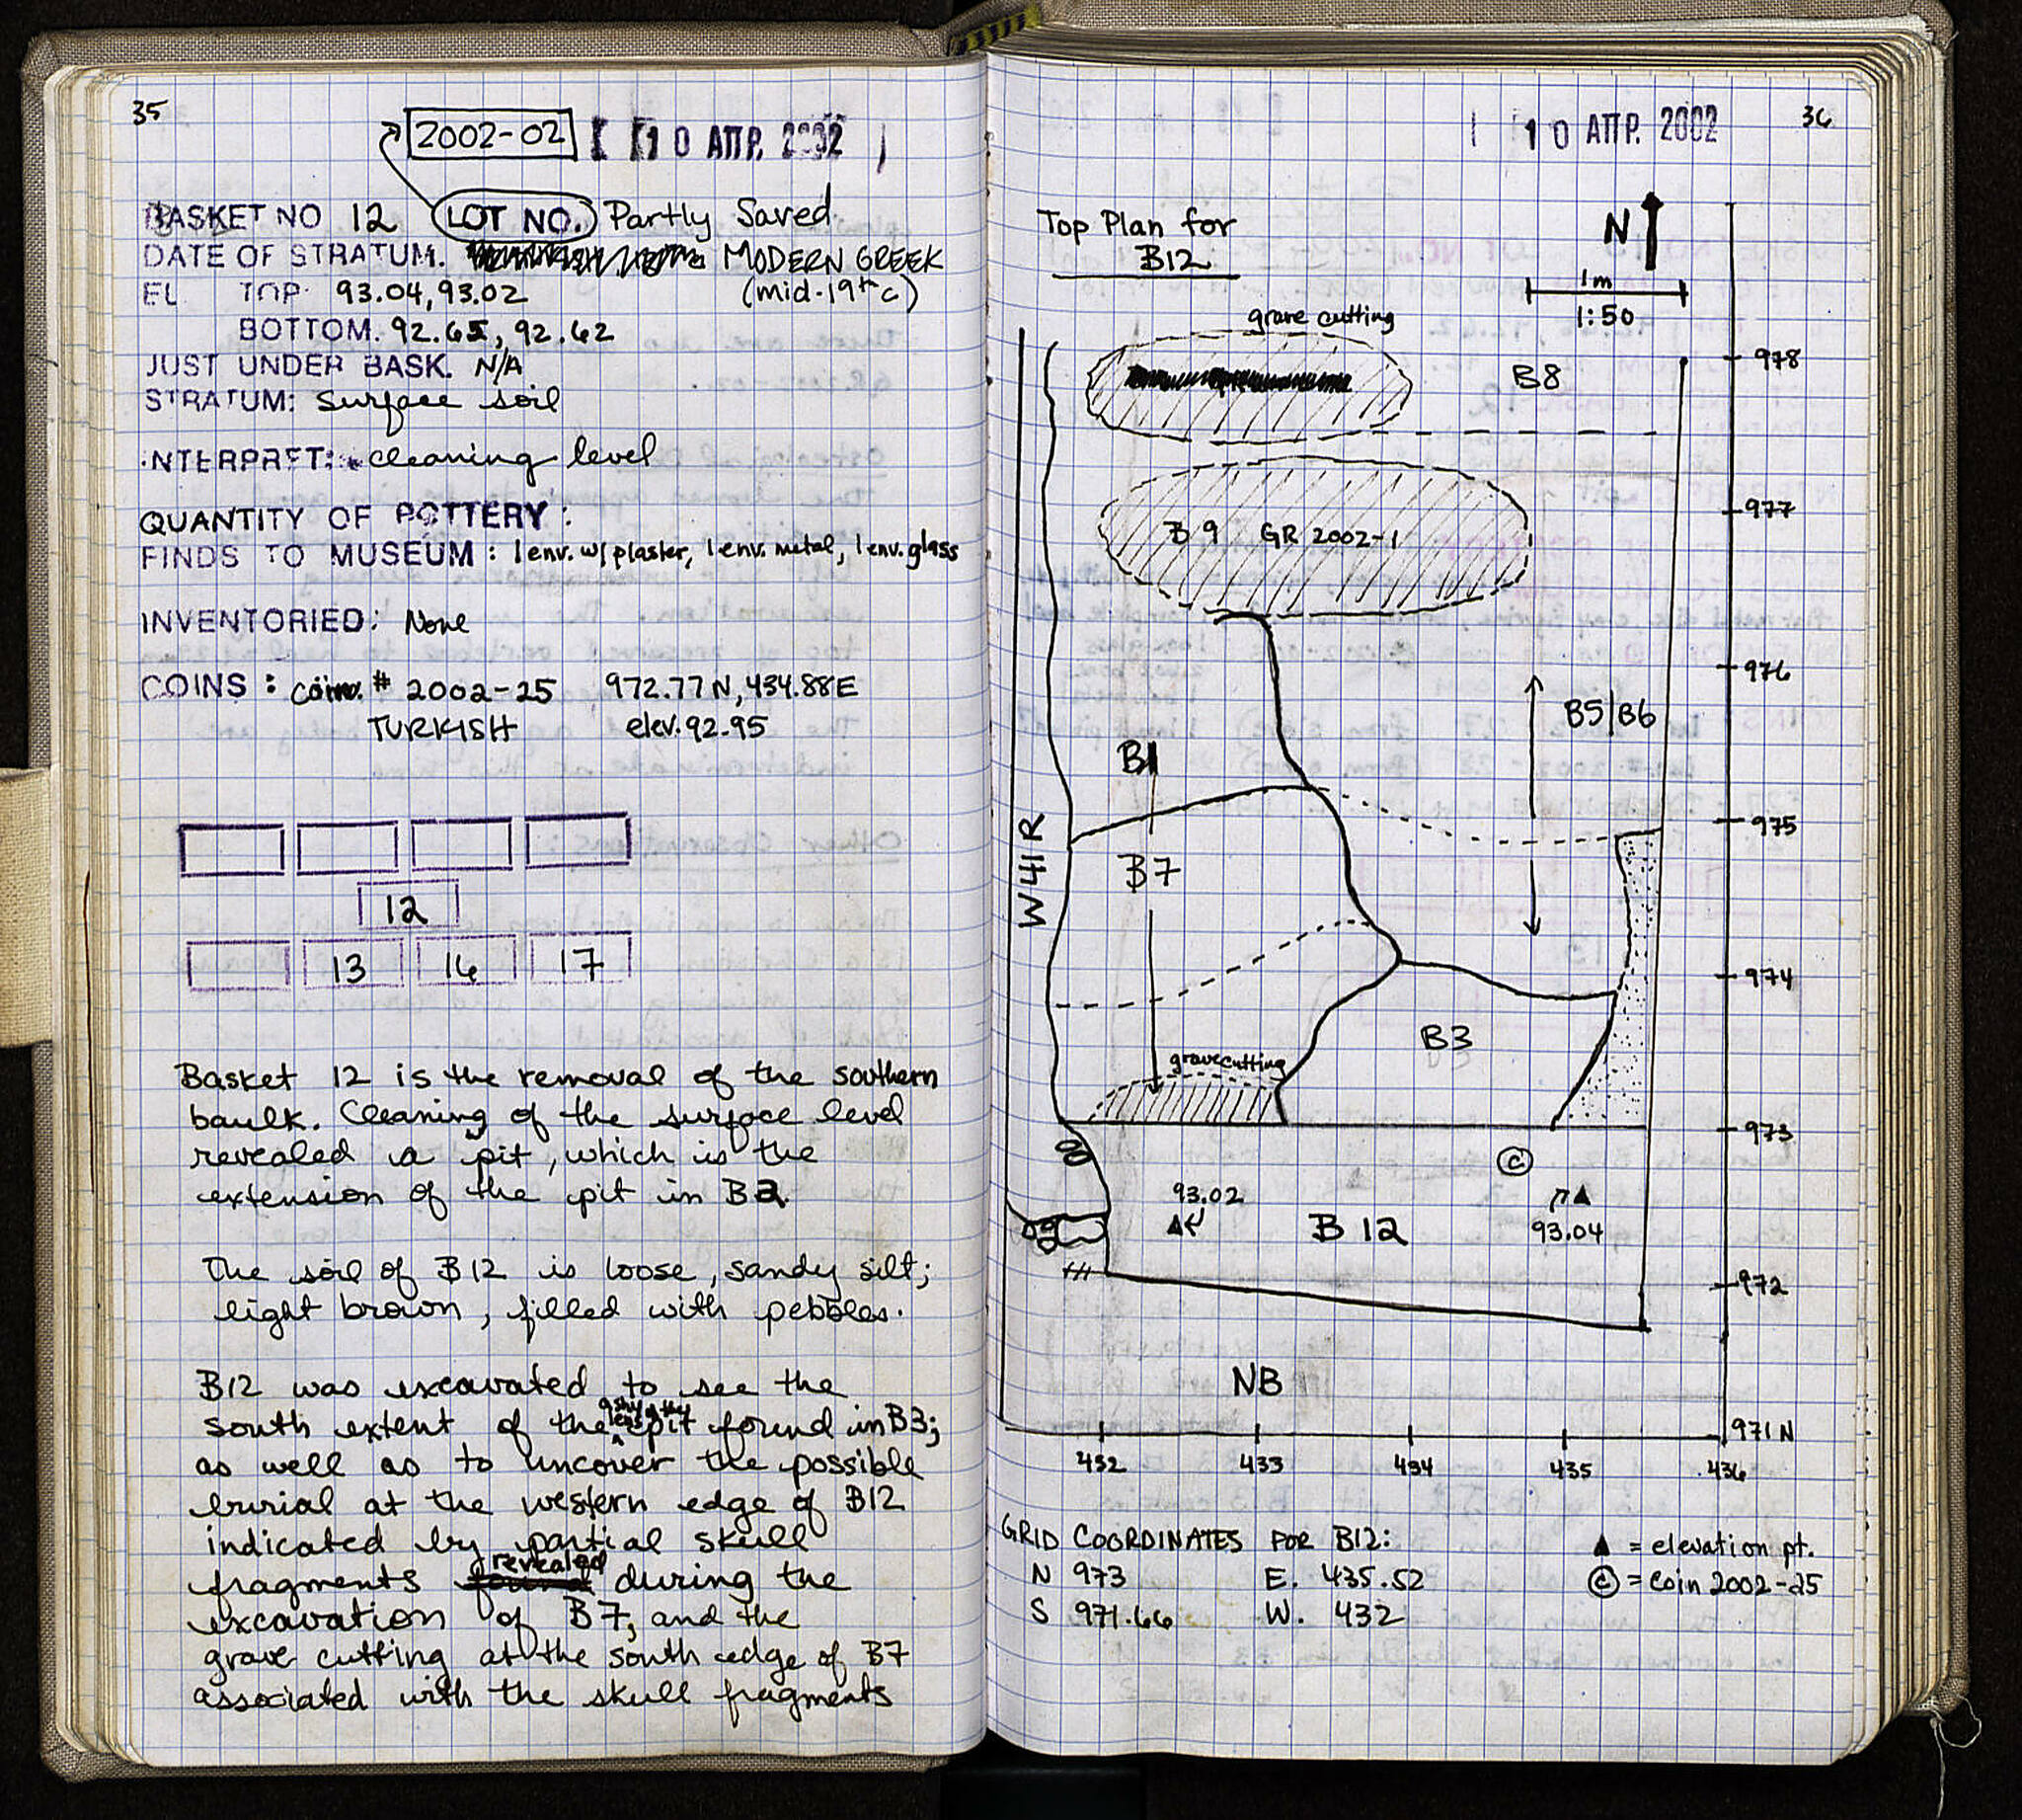 35
2002-02
10 ΑΠΡ. 2002
BASKET NO 12 LOT NO. Partly Saved
DATE OF STRATUM. MODERN GREEK
(mid-19th c)
EL TOP 93.04, 93.02
BOTTOM. 92.65, 92.62
JUST UNDER BASK. N/A
STRATUM: Surface soil
INTERPRET: cleaning level
QUANTITY OF POTTERY:
FINDS TO MUSEUM: 1 env. w/ plaster, 1 env. metal, 1 env. glass
INVENTORIED: None
COINS: # 2002-25 972.77N, 434.88E
TURKISH elev. 92.95
12
13 16 17
Basket 12 is the removal of the southern
baulk. Cleaning of the surface level
revealed a pit, which is the
extension of the pit in B3.
The soil of B12 is loose, sandy silt;
light brown, filled with pebbles.
B12 was excavated to see the
south extent of the ashy pit found in B3;
as well as to uncover the possible
burial at the western edge of B12
indicated by partial skull
fragments revealed during the
excavation of B7, and the
grave cutting at the south edge of B7
associated with the skull fragments
36
10 ΑΠΡ. 2002
Top Plan for
B12
N
1m
1:50
grave cutting
B8
978
B9 GR 2002-1
977
976
B5/B6
B1
975
W41R
B7
974
B3
grave cutting
973
C
93.02
B12
93.04
972
NB
971 N
432 433 434 435 436
GRID COORDINATES FOR B12:
N 973 E. 435.52
S 971.66 W. 432
▲ = elevation pt.
© = Coin 2002-25